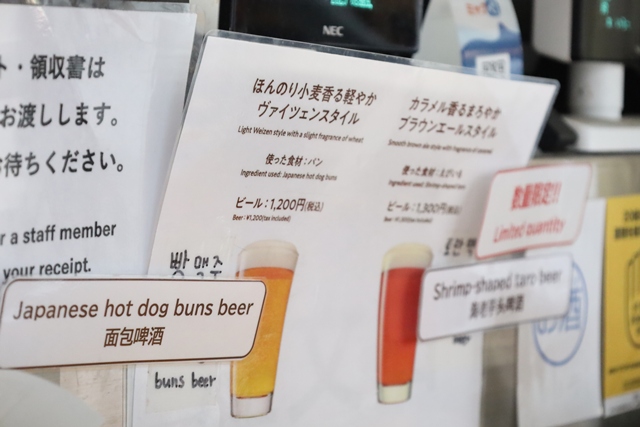 ト・領収書は
お渡しします。
お待ちください。
r a staff member
your receipt.
NEC
ほんのり小麦香る軽やか
ヴァイツェンスタイル
Light Weizen style with a slight fragrance of wheat
使った食材：パン
Ingredient used: Japanese hot dog buns
ビール：1,200円(税込)
Beer : ¥1,200(tax included)
빵 맥주
Japanese hot dog buns beer
面包啤酒
buns beer
カラメル香るまろやか
ブラウンエールスタイル
Smooth brown ale style with fragrance of caramel
使った食材：えびいも
Ingredient used: Shrimp-shaped taro
ビール：1,300円(税込)
토란 맥
数量限定!!
Limited quantity
Shrimp-shaped taro beer
海老芋头啤酒
お酒